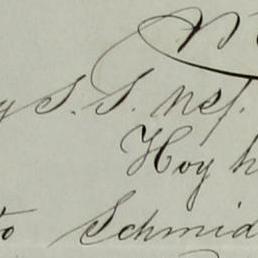 y S. S. nef.
Hoy h
to Schmid